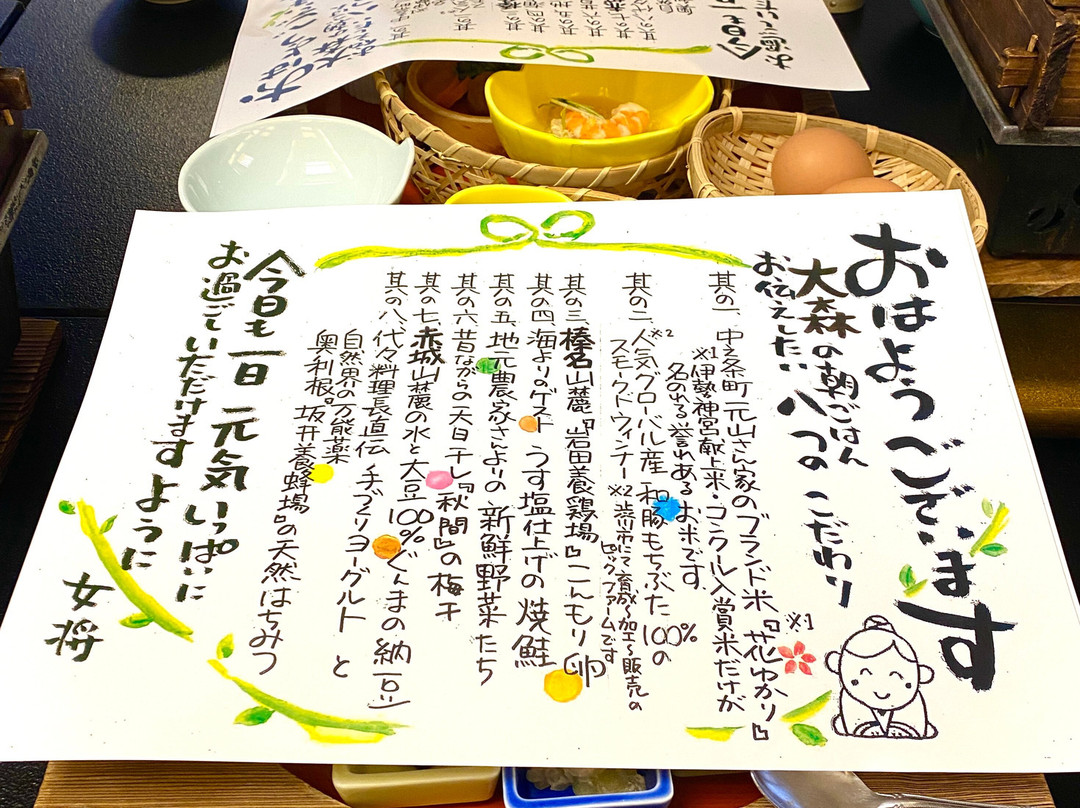 おはようございます
大森の朝ごはん
お伝えしたい八つのこだわり
其の一、中之条町元山さん家のブランド米『花ゆかり』※1
※1伊勢神宮献上米・コンクール入賞米だけが
名のれる誉れあるお米です
其の二、人気グローバル産 和豚もちぶた100%の
スモークドウィンナー ※2渋川市にて育成〜加工〜販売の
※2
ピッグファームです
其の三、榛名山麓『岩田養鶏場』こんもり卵
其の四、海よりのゲスト うす塩仕上げの焼鮭
其の五、地元農家さんよりの新鮮野菜たち
其の六、昔ながらの天日干し『秋間』の梅干
其の七、赤城山麓の水と大豆100%ぐんまの納豆
其の八、代々料理長直伝 手づくりヨーグルト と
自然界の万能薬
奥利根『坂井養蜂場』の天然はちみつ
今日も一日 元気いっぱいに
お過ごしいただけますように
女将